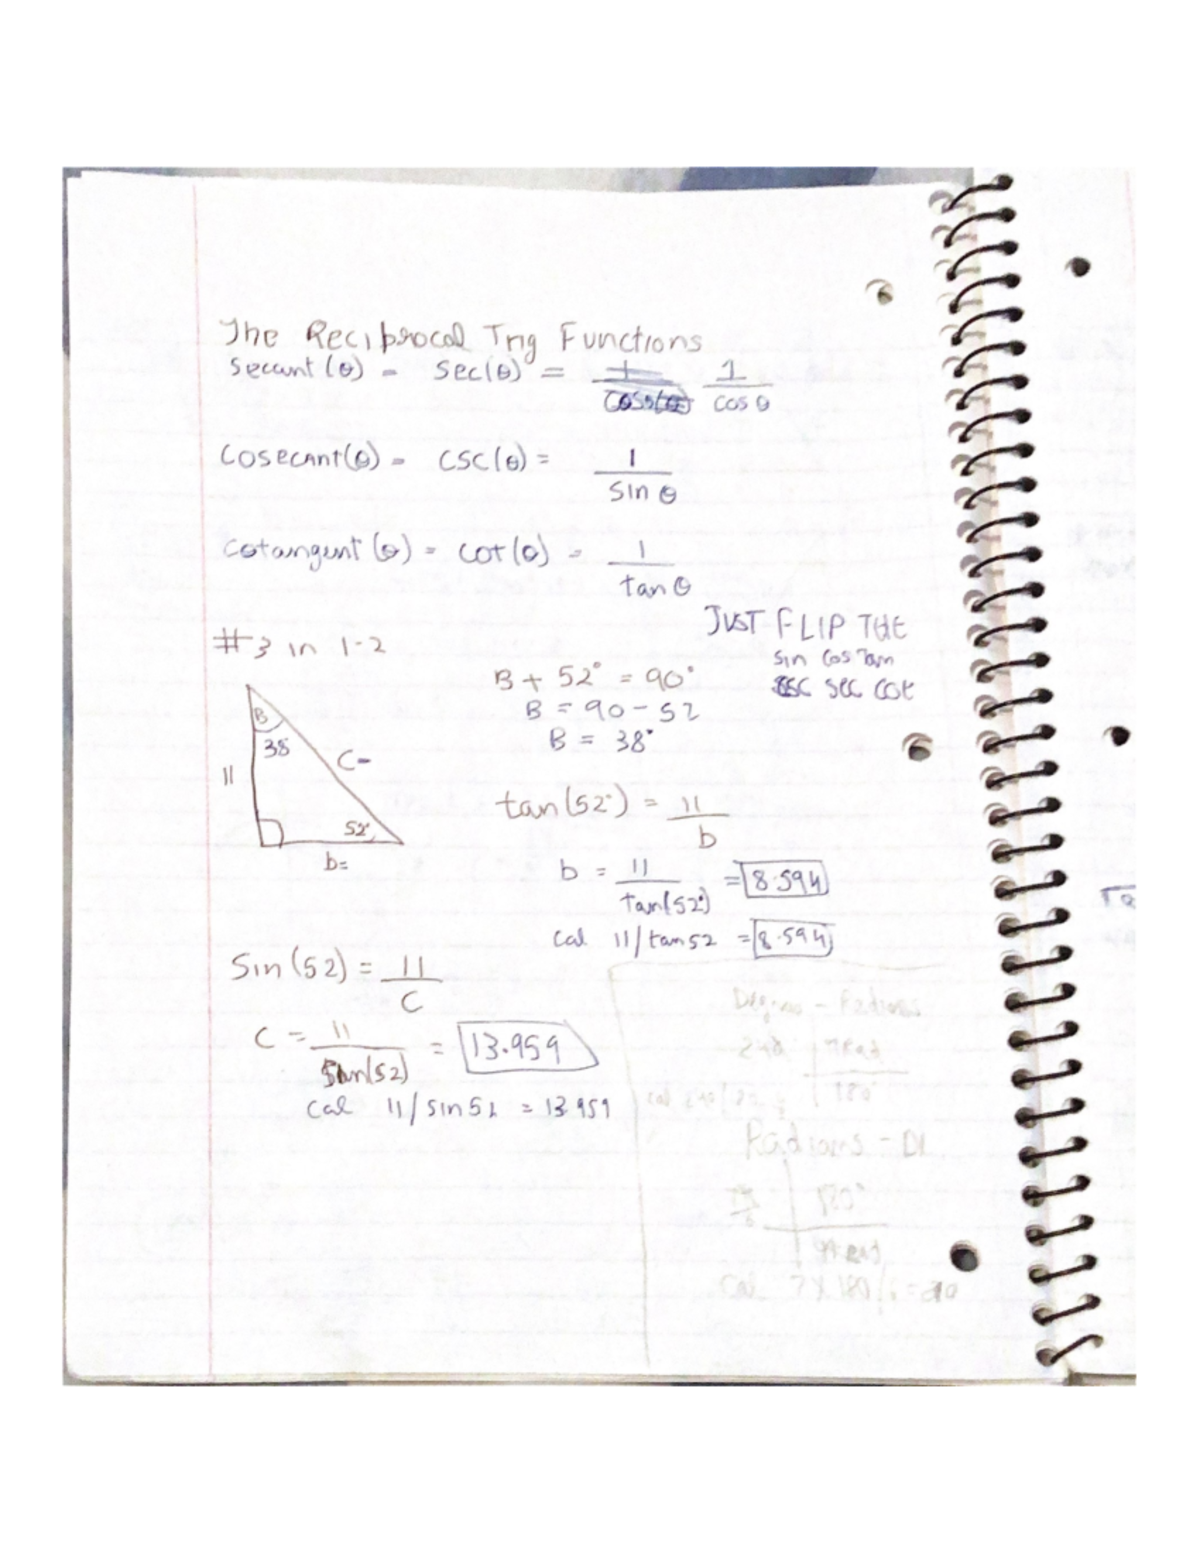 The Reciprocal Trig Functions
Secant (θ) - Sec(θ) = 1/cos θ
Cosecant(θ) - CSC(θ) = 1/sin θ
Cotangent (θ) - cot(θ) = 1/tan θ
JUST FLIP THE
sin cos Tan
CSC sec cot
#3 in 1-2
B + 52° = 90°
B = 90 - 52
B = 38°
B
38
11
C=
52°
b=
tan(52°) = 11/b
b = 11/tan(52°) = 8.594
cal 11/tan 52 = 8.594
Sin (52) = 11/C
C = 11/Sin(52) = 13.959
cal 11/sin 52 = 13.959
Degrees - Radians
180°
Radians -
180°